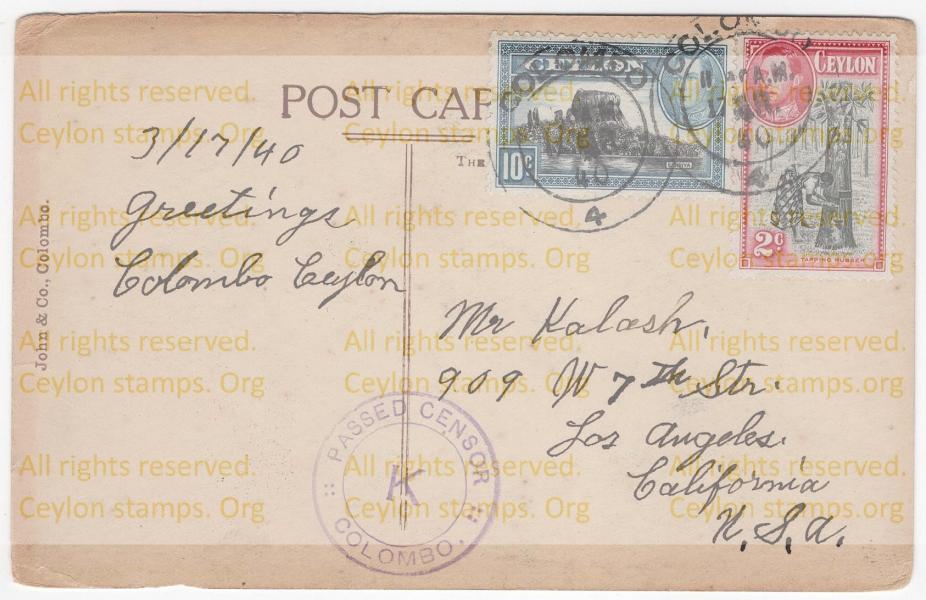 POST CAR
THE
3/17/40
Greetings
Colombo Ceylon
John & Co., Colombo.
CEYLON
10c
COLOMBO
40
4
COLOMBO
11 A.M.
40
4
CEYLON
2c
TAPPING RUBBER
Mr Kalash,
909 W 7th Str.
Los Angeles.
California
U.S.A.
PASSED CENSOR
K
COLOMBO.
All rights reserved.
Ceylon stamps. Org
All rights reserved.
Ceylon stamps. Org
All rights reserved.
Ceylon stamps. Org
All rights reserved.
Ceylon stamps. Org
All rights reserved.
Ceylon stamps. Org
All rights reserved.
Ceylon stamps. Org
All rights reserved.
Ceylon stamps. Org
All rights reserved.
Ceylon stamps. Org
All rights reserved.
Ceylon stamps. Org
All rights reserved.
Ceylon stamps. Org
All rights reserved.
Ceylon stamps. Org
All rights reserved.
Ceylon stamps. Org